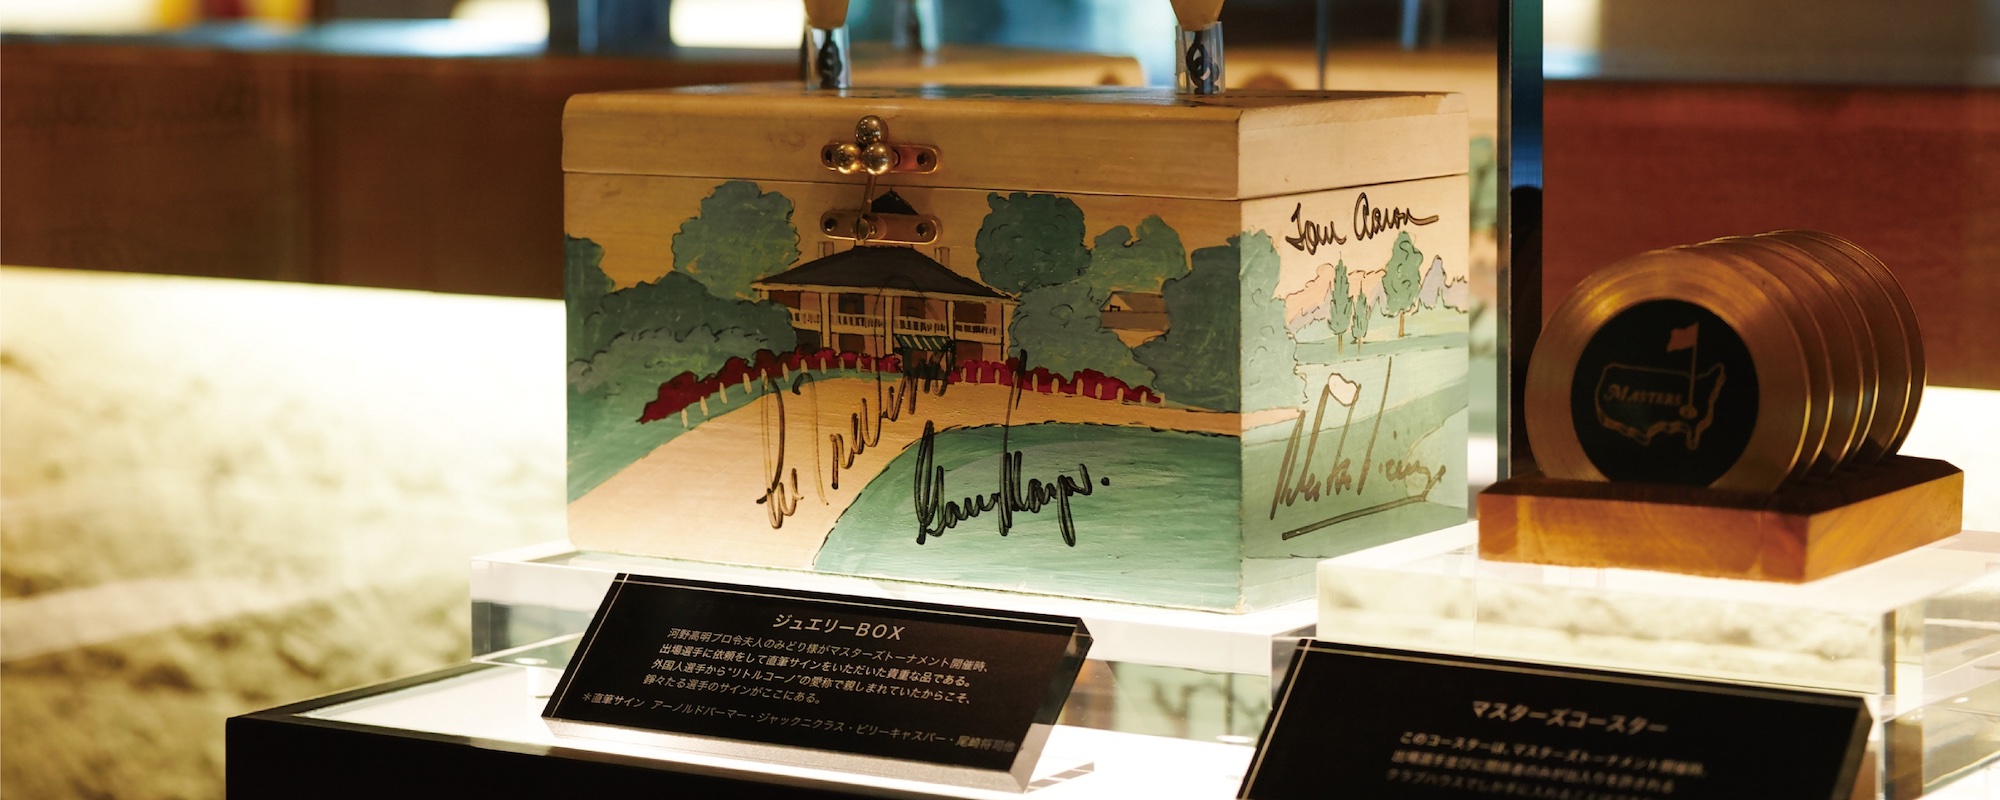 Tom Aaron
Lee Trevino
Gary Player.
MASTERS
ジュエリーBOX
河野高明プロ令夫人のみどり様がマスターズトーナメント開催時、
出場選手に依頼をして直筆サインをいただいた貴重な品である。
外国人選手から"リトルコーノ"の愛称で親しまれていたからこそ、
錚々たる選手のサインがここにある。
＊直筆サイン アーノルドパーマー・ジャックニクラス・ビリーキャスパー・尾崎将司他
マスターズコースター
このコースターは、マスターズトーナメント開催時、
出場選手並びに関係者のみが出入りを許される
クラブハウスでしか手に入れることは